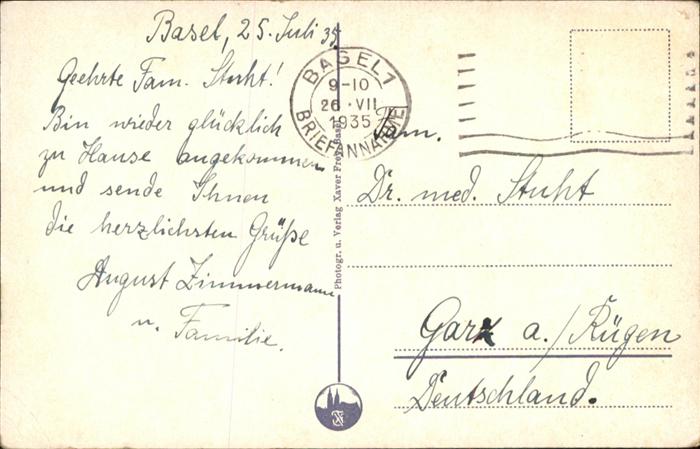 Basel, 25. Juli 35
Geehrte Fam. Stuht!
Bin wieder glücklich
zu Hause angekommen
und sende Ihnen
die herzlichsten Grüße
August Zimmermann
u. Familie.
BASEL 1
9-10
26. VII
1935
BRIEFANNAHME
Photogr. u. Verlag Xaver Frey, Basel
Fam.
Dr. med. Stuht
Garz a./Rügen
Deutschland.